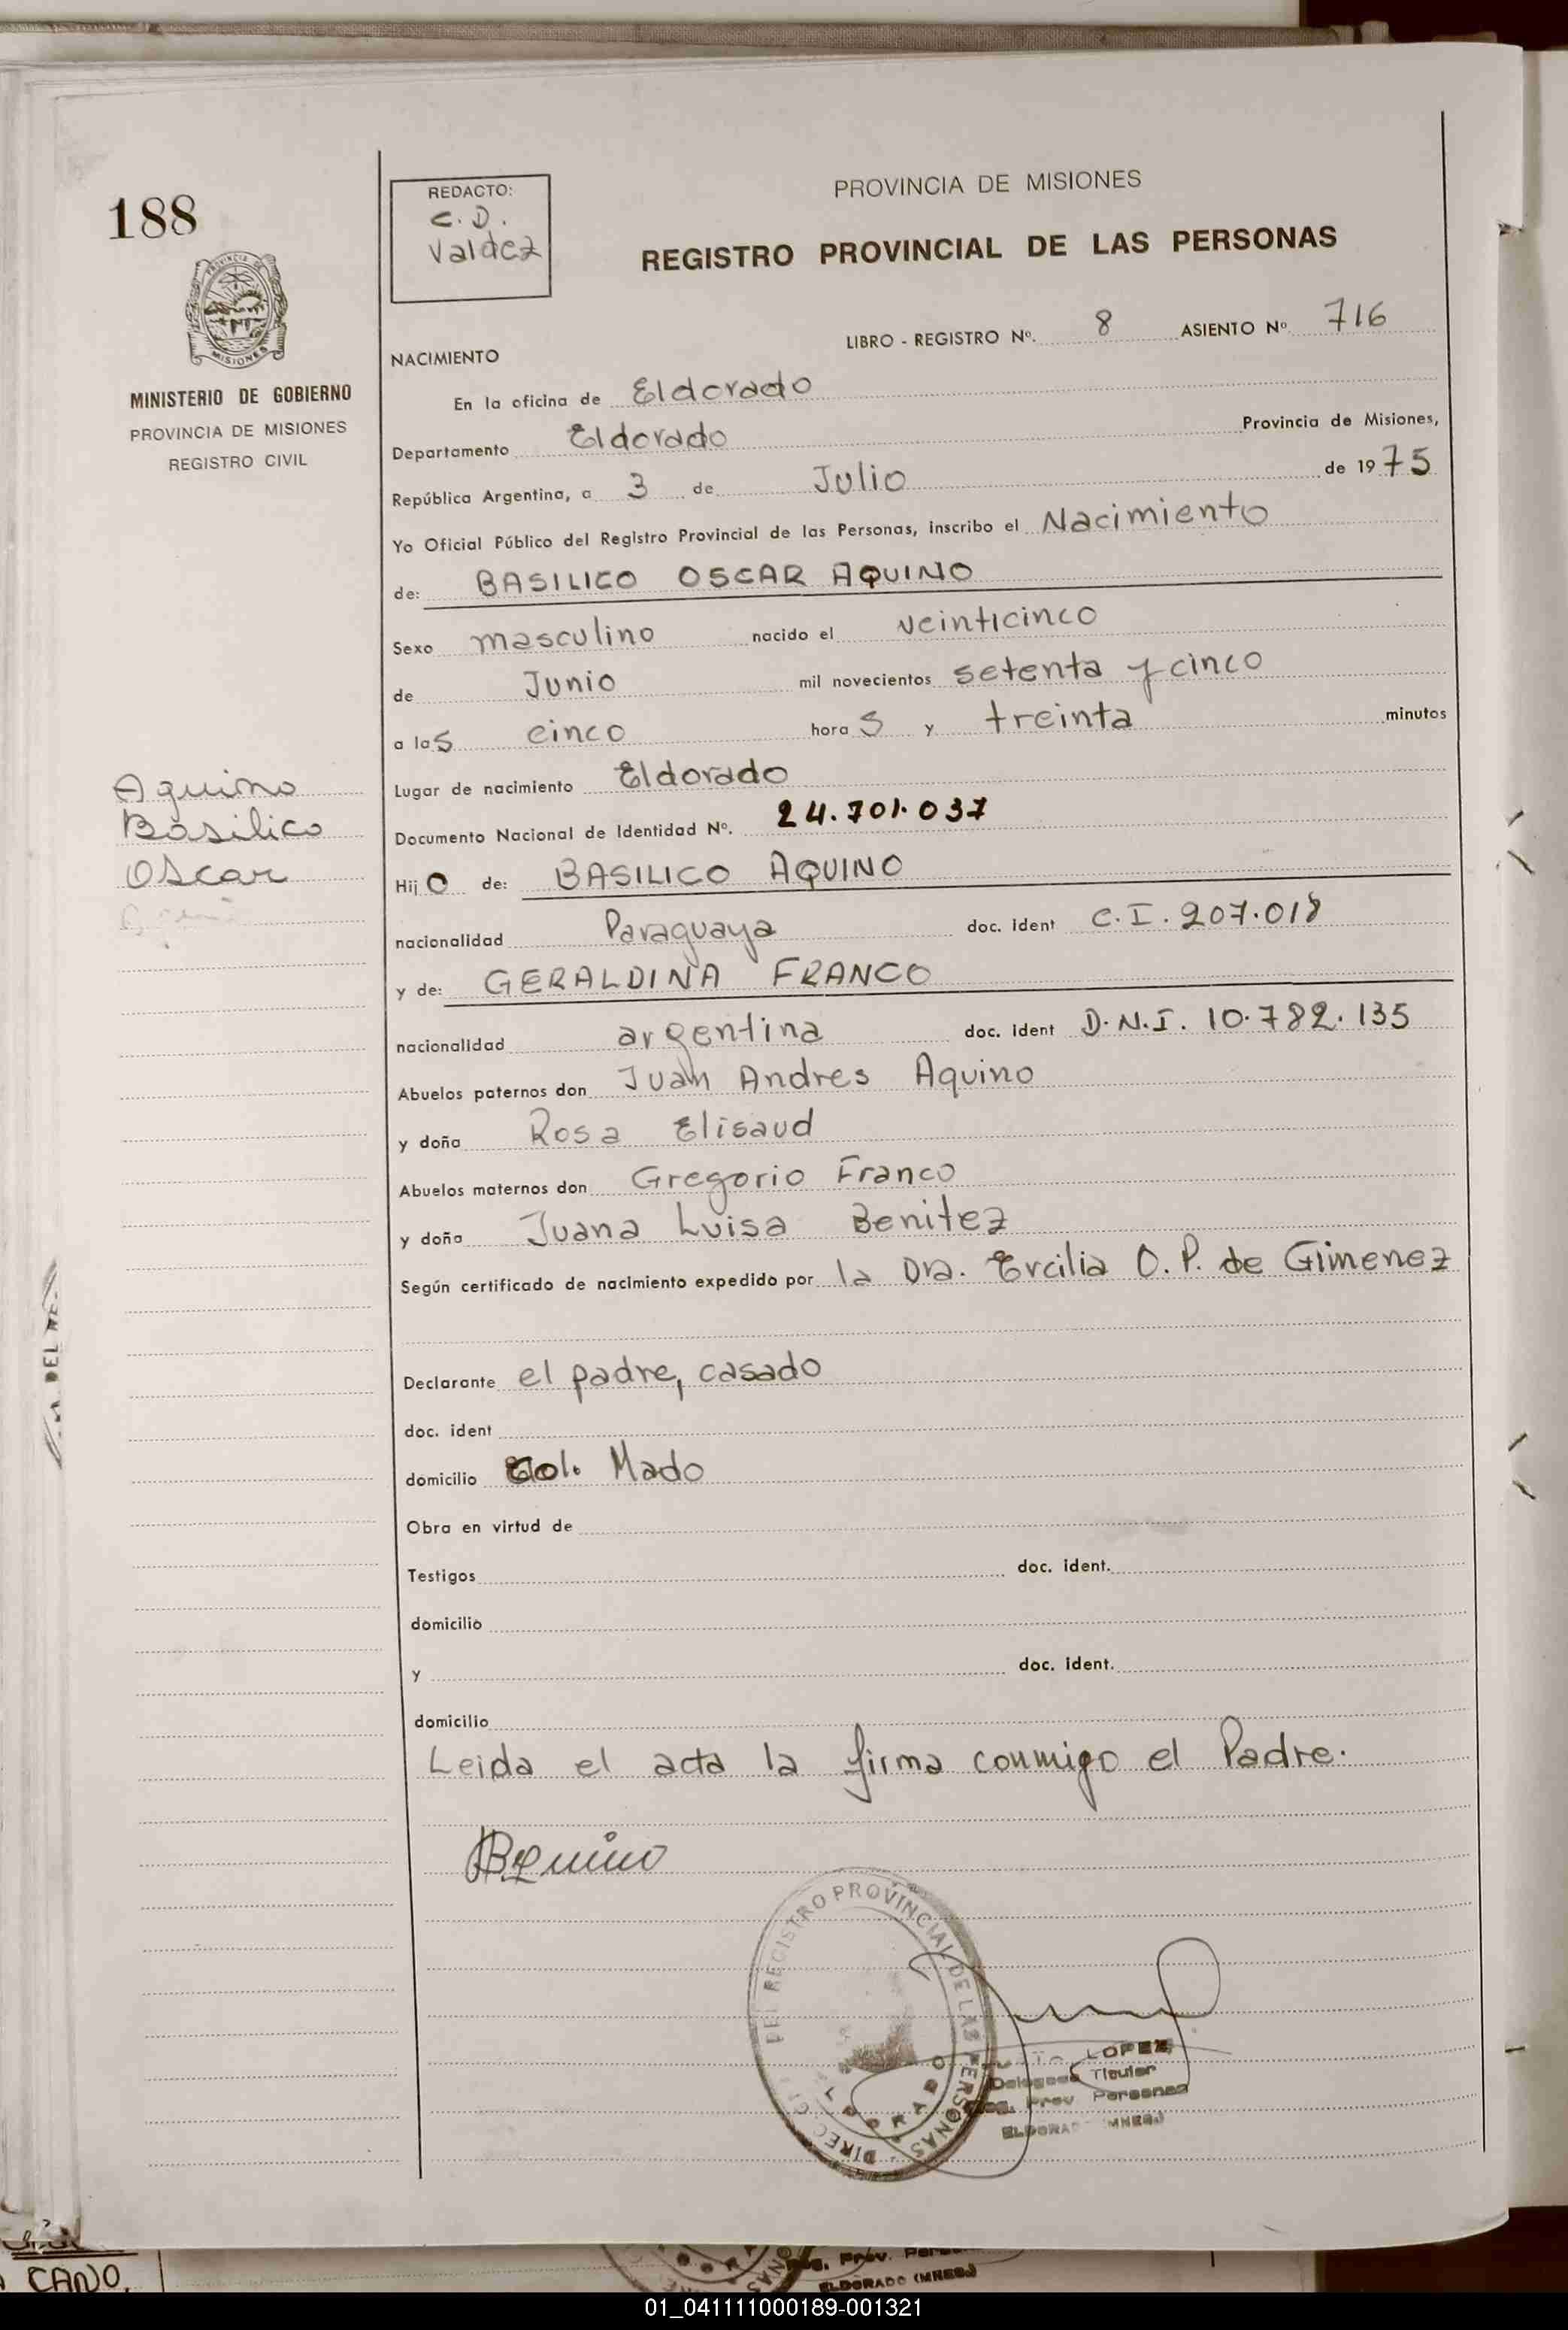 188
PROVINCIA DE
MISIONES
MINISTERIO DE GOBIERNO
PROVINCIA DE MISIONES
REGISTRO CIVIL
REDACTO:
C. D.
Valdez
PROVINCIA DE MISIONES
REGISTRO PROVINCIAL DE LAS PERSONAS
LIBRO - REGISTRO Nº. 8 ASIENTO Nº 716
NACIMIENTO
En la oficina de Eldorado
Departamento Eldorado Provincia de Misiones,
República Argentina, a 3 de Julio de 1975
Yo Oficial Público del Registro Provincial de las Personas, inscribo el Nacimiento
de: BASILICO OSCAR AQUINO
Sexo masculino nacido el veinticinco
de Junio mil novecientos setenta y cinco
a las cinco horas y treinta minutos
Lugar de nacimiento Eldorado
Documento Nacional de Identidad Nº. 24.701.037
Hijo de: BASILICO AQUINO
nacionalidad Paraguaya doc. ident C.I. 207.018
y de: GERALDINA FRANCO
nacionalidad argentina doc. ident D.N.I. 10.782.135
Abuelos paternos don Juan Andres Aquino
y doña Rosa Elisaud
Abuelos maternos don Gregorio Franco
y doña Juana Luisa Benitez
Según certificado de nacimiento expedido por la Dra. Ercilia O. P. de Gimenez
Declarante el padre, casado
doc. ident
domicilio Col. Mado
Obra en virtud de
Testigos doc. ident.
domicilio
y doc. ident.
domicilio
Leida el acta la firma conmigo el Padre.
Aquino
Basilico
Oscar
DIRECCION DEL REGISTRO PROVINCIAL DE LAS PERSONAS
LOPEZ
Delegado Titular
Reg. Prov. Personas
ELDORADO (MNES.)
CANO,
Prov.
ELDORADO (MNES.)
01_041111000189-001321